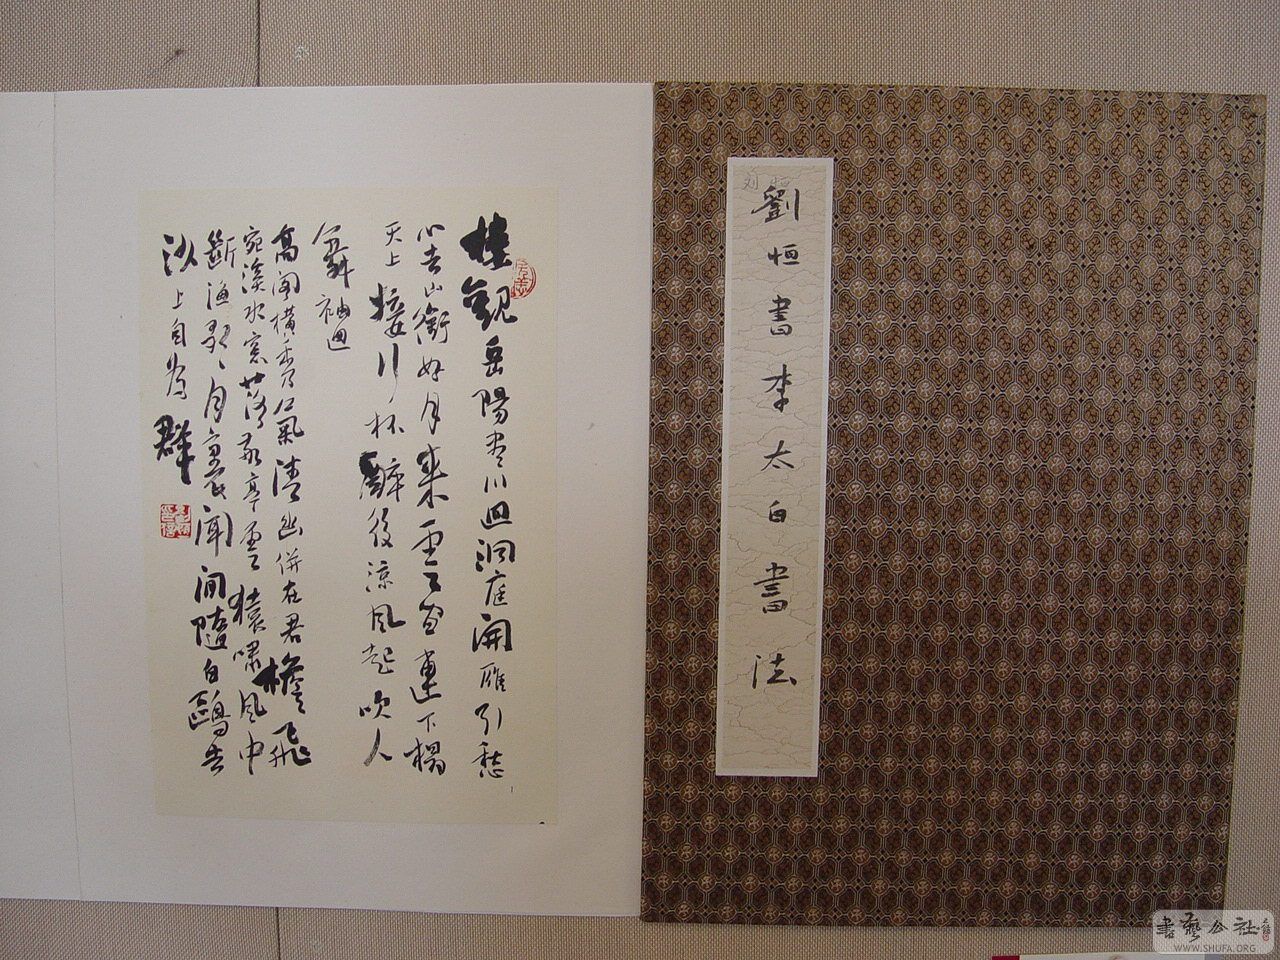 劉恒書李太白書法
楼觀岳陽盡川迴洞庭開雁引愁
心去山銜好月來雲間連下榻
天上接行杯醉後涼風起吹人
舞袖迴
高閣橫秀氣清幽併在君檐飛
宛溪水窗落敬亭雲猿嘯風中
斷漁歌月裏聞閒隨白鷗去
沙上自為群
書藝公社
WWW.SHUFA.ORG